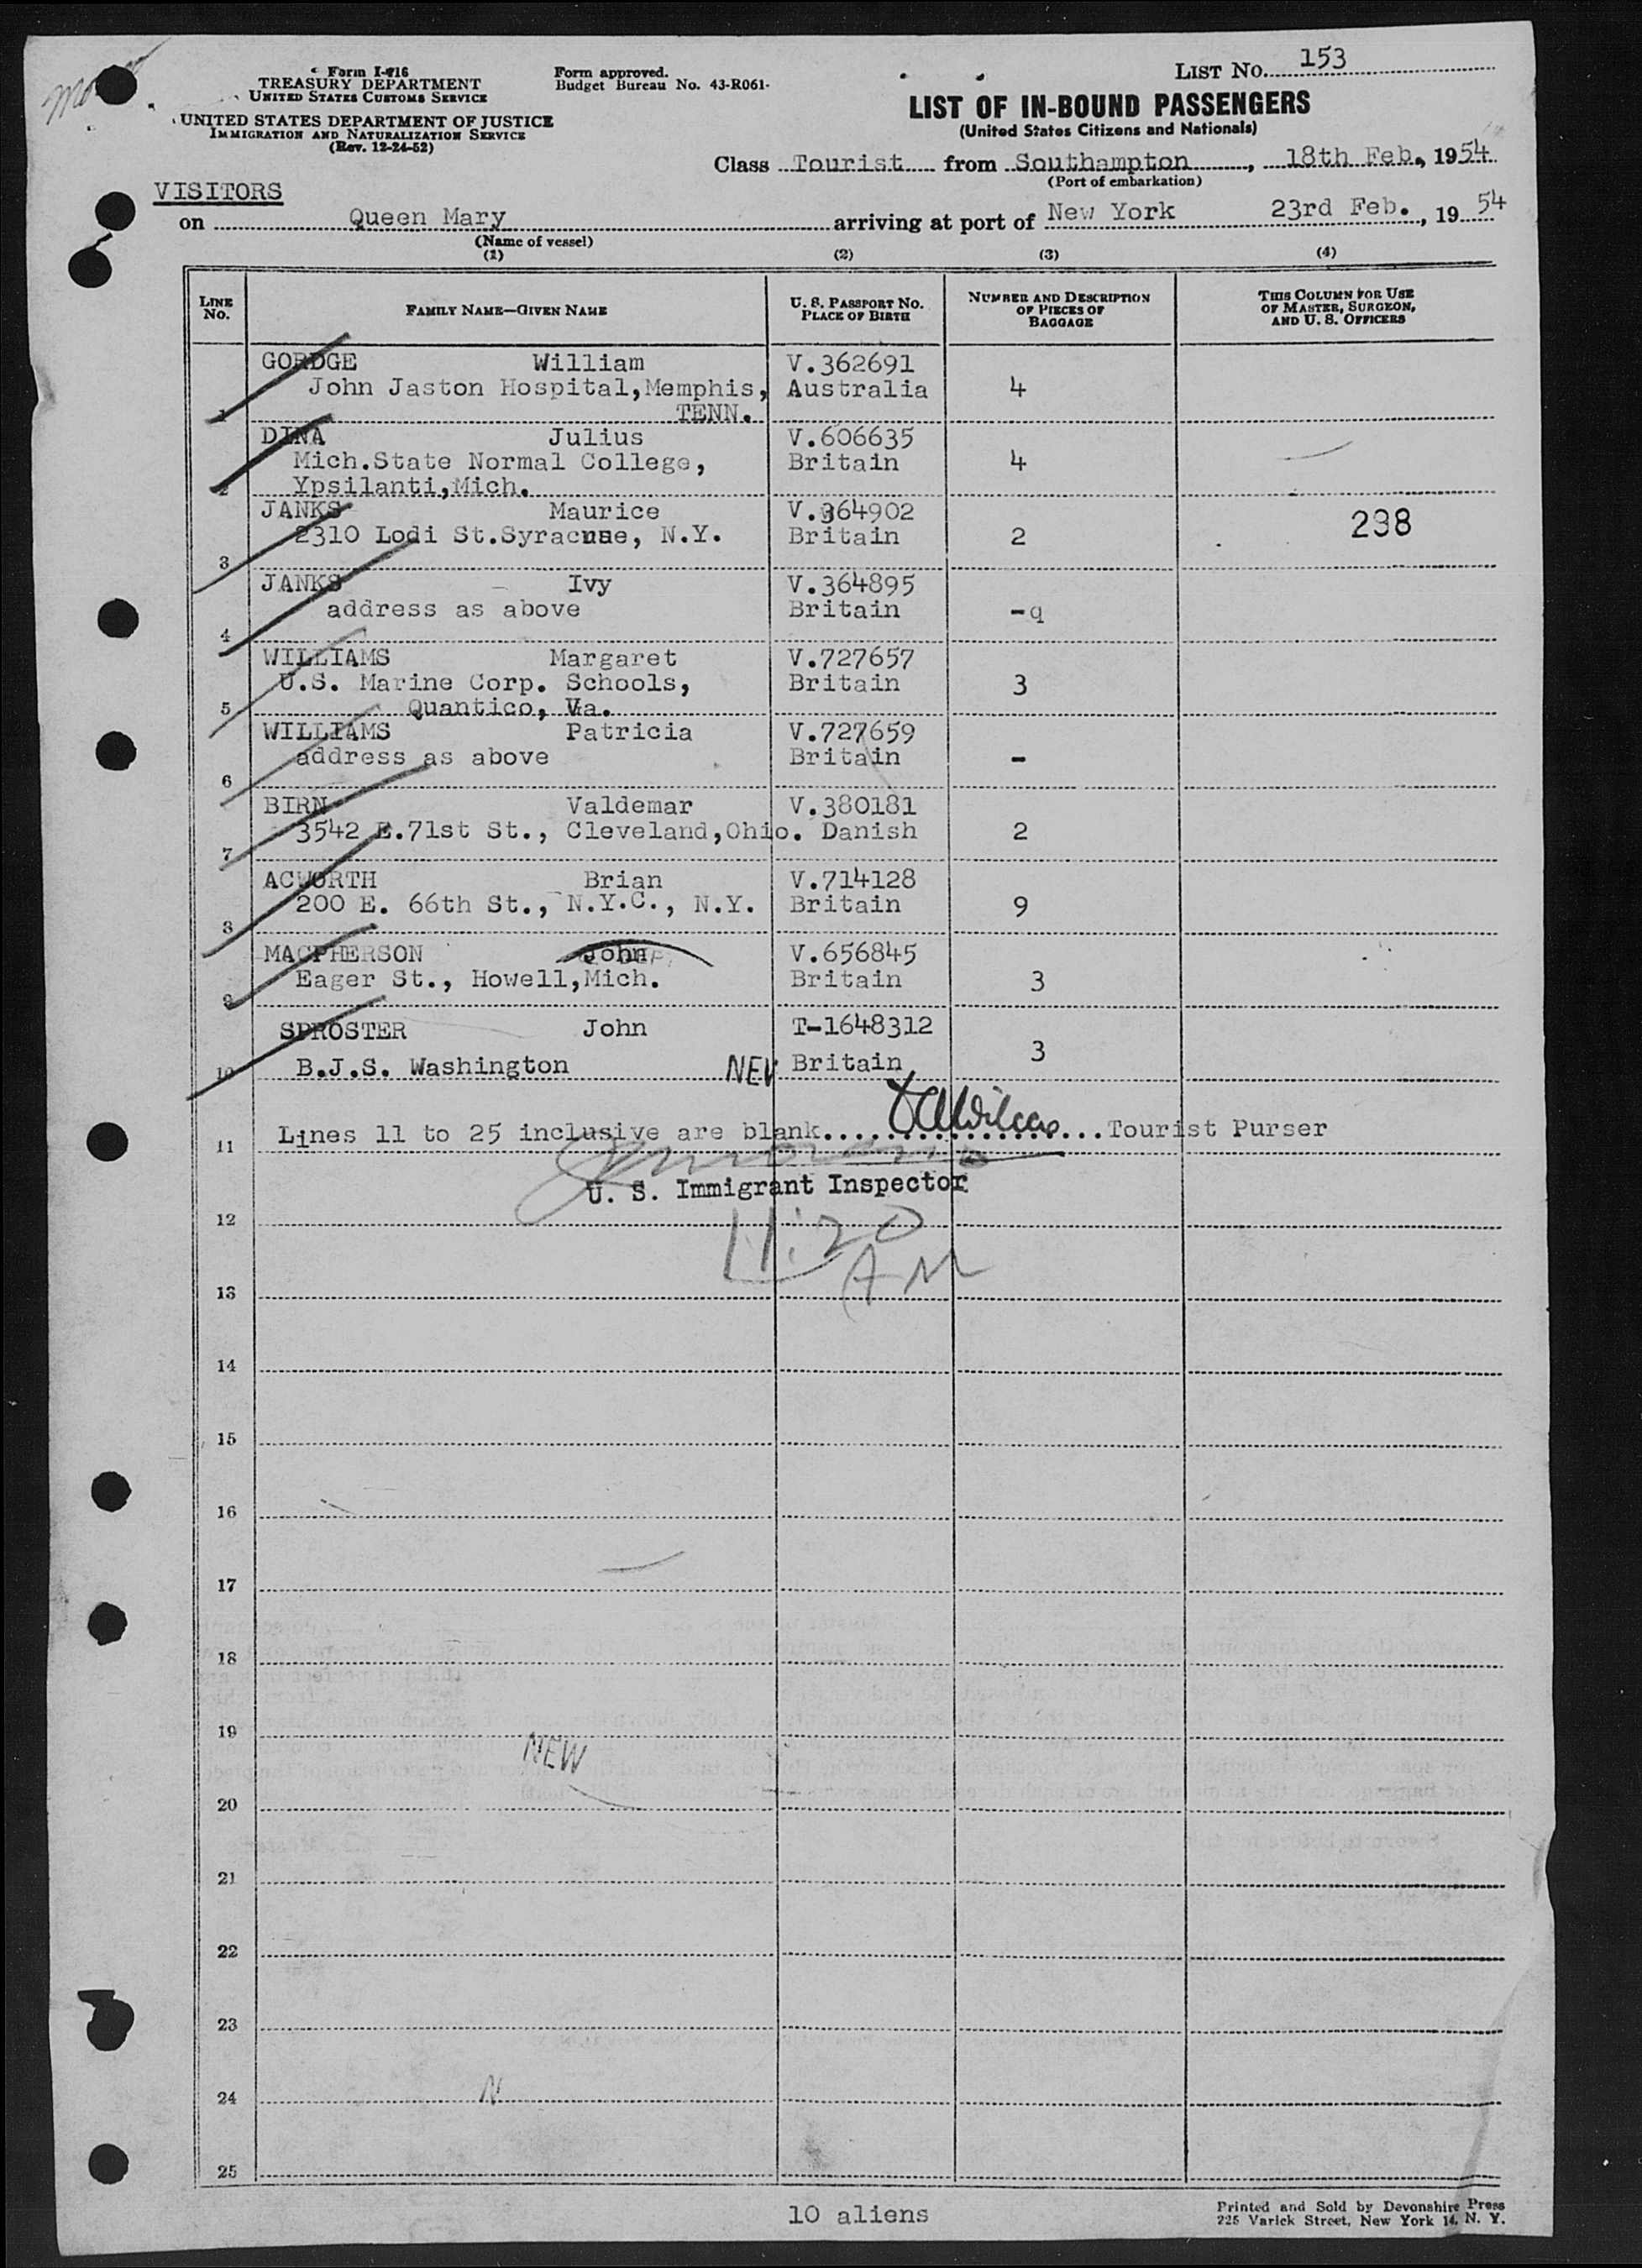 Form I-416
TREASURY DEPARTMENT
UNITED STATES CUSTOMS SERVICE
UNITED STATES DEPARTMENT OF JUSTICE
IMMIGRATION AND NATURALIZATION SERVICE
(Rev. 12-24-52)
Form approved.
Budget Bureau No. 43-R061-
LIST No. 153
LIST OF IN-BOUND PASSENGERS
(United States Citizens and Nationals)
Class Tourist from Southampton, 18th Feb., 1954
(Port of embarkation)
VISITORS
on Queen Mary arriving at port of New York 23rd Feb., 19 54
(Name of vessel)
(1) (2) (3) (4)
LINE No. FAMILY NAME—GIVEN NAME U. S. PASSPORT NO. PLACE OF BIRTH NUMBER AND DESCRIPTION OF PIECES OF BAGGAGE THIS COLUMN FOR USE OF MASTER, SURGEON, AND U. S. OFFICERS
GORDGE William V.362691
John Jaston Hospital,Memphis, Australia 4
1 TENN.
DINA Julius V.606635
Mich.State Normal College, Britain 4
2 Ypsilanti,Mich.
JANKS Maurice V.364902 298
2310 Lodi St.Syracuse, N.Y. Britain 2
3
JANKS Ivy V.364895
address as above Britain -q
4
WILLIAMS Margaret V.727657
U.S. Marine Corp. Schools, Britain 3
5 Quantico, Va.
WILLIAMS Patricia V.727659
address as above Britain -
6
BIRN Valdemar V.380181
3542 E.71st St., Cleveland,Ohio. Danish 2
7
ACWORTH Brian V.714128
200 E. 66th St., N.Y.C., N.Y. Britain 9
8
MACPHERSON John V.656845
Eager St., Howell,Mich. Britain 3
9
SPROSTER John T-1648312
10 B.J.S. Washington NEW Britain 3
11 Lines 11 to 25 inclusive are blank. Tourist Purser
U. S. Immigrant Inspector
12
11:20
AM
13
14
15
16
17
18
19
NEW
20
21
22
23
24 N
25
10 aliens
Printed and Sold by Devonshire Press
225 Varick Street, New York 14, N. Y.